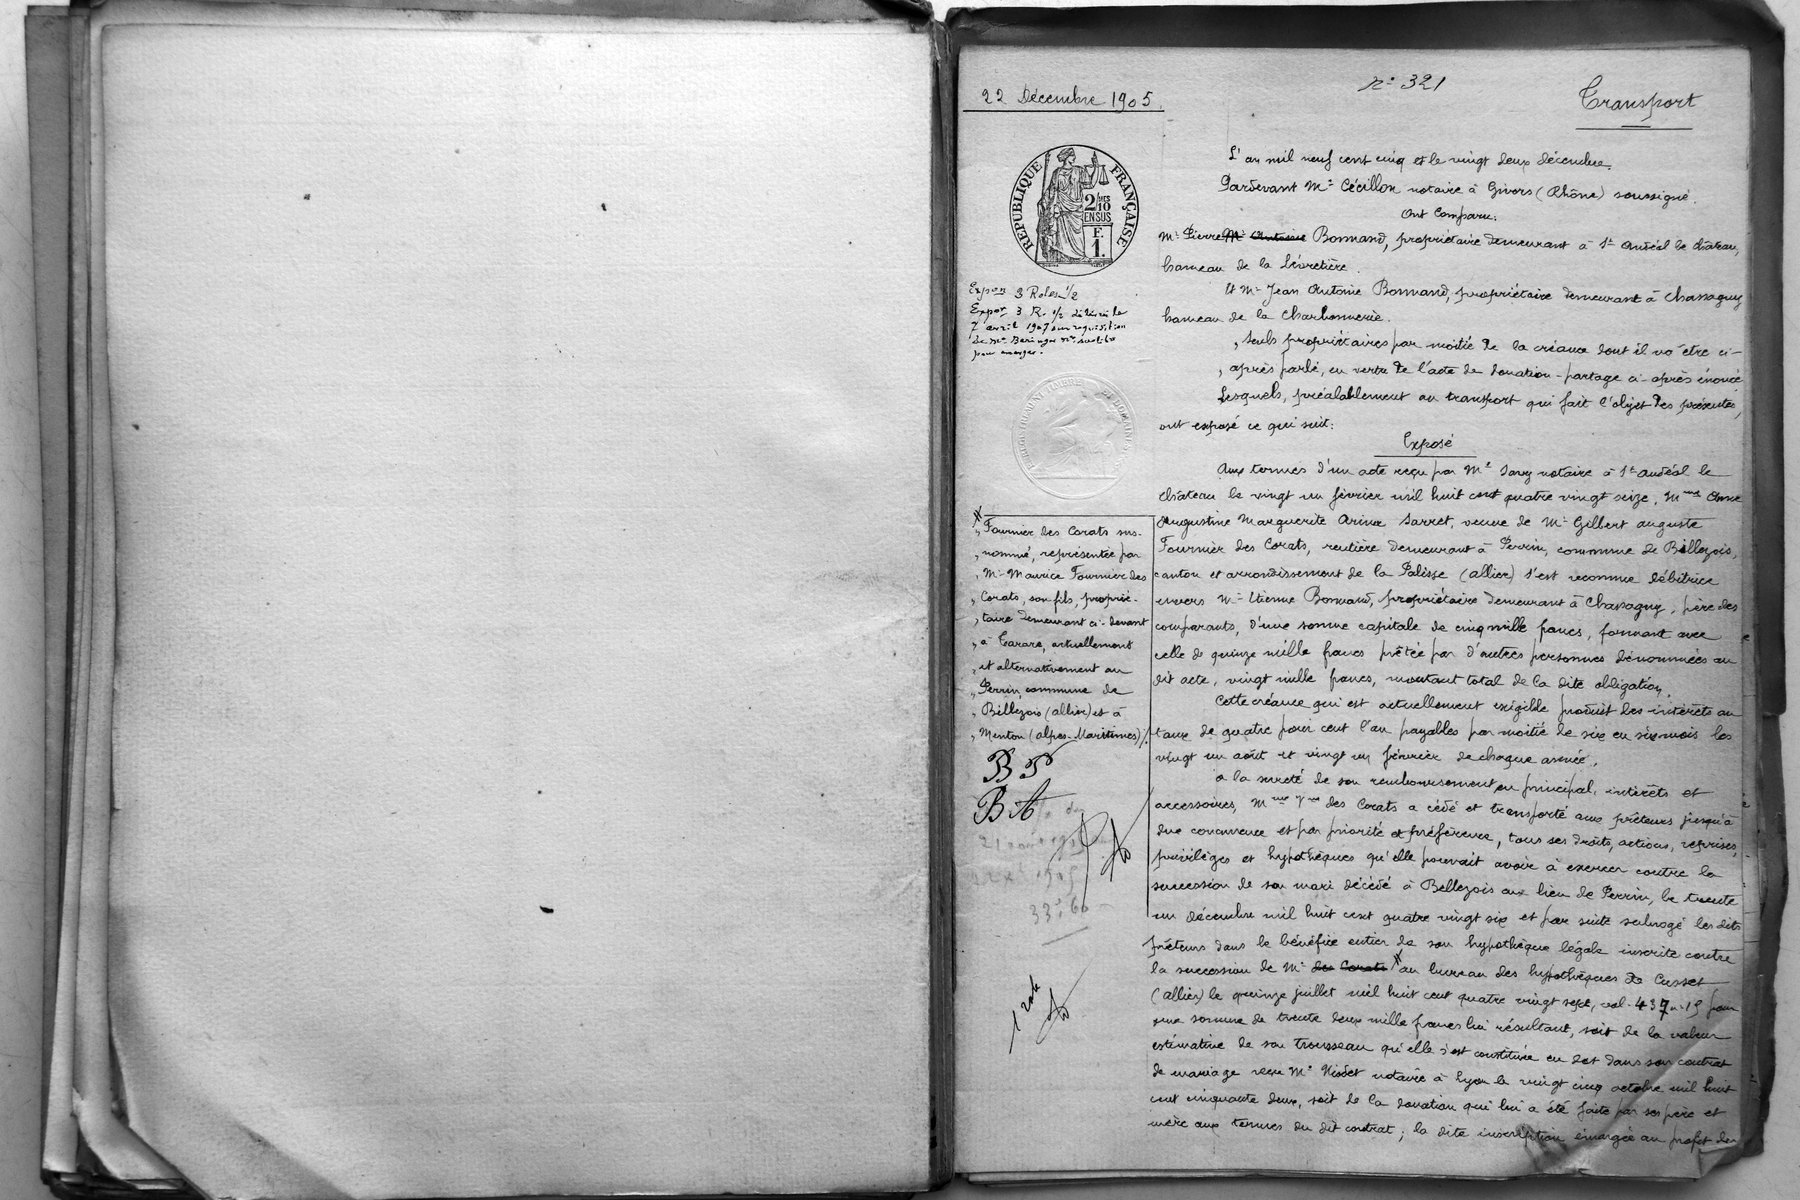 22 Décembre 1905.
N° 321
Transport
RÉPUBLIQUE FRANÇAISE
2/10 MES
EN SUS
F.
1.
Expon 3 Roles 1/2
Expon 3 R. 1/2 délivrée le
7 avril 1907 sur réquisition
de Me
L'an mil neuf cent cinq et le vingt deux décembre.
Pardevant Me Cécillon notaire à Givors (Rhône) soussigné.
Ont Comparu:
Mr Pierre Mr Antoine Bonnand, propriétaire demeurant à St Andéol le château,
hameau de la Lévretière.
Et Mr Jean Antoine Bonnand, propriétaire demeurant à Chassagny
hameau de la Charbonnerie.
„ Seuls propriétaires par moitié de la créance dont il va être ci-
„ après parlé, en vertu de l'acte de donation-partage ci-après énoncé
Lesquels, préalablement au transport qui fait l'objet des présentes,
ont exposé ce qui suit:
Exposé
Aux termes d'un acte reçu par Me notaire à St Andéol le
château le vingt un février mil huit cent quatre vingt seize, Mme Anne
Augustine Marguerite Sarret, veuve de Mr Gilbert Auguste
Fournier des Corats, rentière demeurant à Perrin, commune de Billezois,
canton et arrondissement de la Palisse (Allier) s'est reconnue débitrice
envers Mr Etienne Bonnand, propriétaire demeurant à Chassagny, père des
comparants, d'une somme capitale de cinq mille francs, formant avec
celle de quinze mille francs prêtée par d'autres personnes dénommées au
dit acte, vingt mille francs, montant total de la dite obligation.
Cette créance qui est actuellement exigible produit des intérêts au
taux de quatre pour cent l'an payables par moitié de six en six mois les
vingt un août et vingt un février de chaque année.
A la sureté de son remboursement en principal, intérêts et
accessoires, Mme Vve des Corats a cédé et transporté aux prêteurs jusqu'à
due concurrence et par priorité et préférence, tous ses droits, actions, reprises,
privilèges et hypothèques qu'elle pouvait avoir à exercer contre la
succession de son mari décédé à Bellezois au lieu de Perrin, le trente
un décembre mil huit cent quatre vingt six et par suite subrogé les dits
prêteurs dans le bénéfice entier de son hypothèque légale inscrite contre
la succession de Mr des Corats # au bureau des hypothèques de Cusset
(Allier) le quinze juillet mil huit cent quatre vingt sept, vol. 437 n° 15 pour
une somme de trente deux mille francs lui résultant, soit de la valeur
estimative de son trousseau qu'elle s'est constituée en dot dans son contrat
de mariage reçu Me notaire à Lyon le vingt cinq octobre mil huit
cent cinquante deux, soit de la donation qui lui a été faite par ses père et
mère aux termes du dit contrat; la dite inscription émargée au profit des
#
„ Fournier des Corats sus-
„ nommé, représentée par
„ Mr Maurice Fournier des
„ Corats, son fils, proprié-
„ taire demeurant ci-devant
„ à Tarare, actuellement
„ et alternativement au
„ Perrin, commune de
„ Billezois (allier) et à
„ Menton (alpes-Maritimes)/.
B P
B A
33.60
1 role